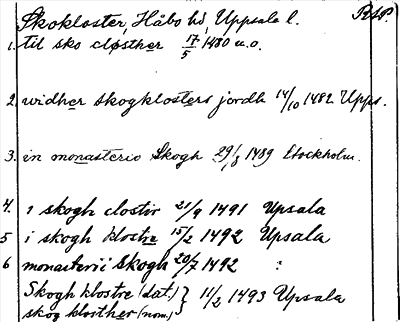 Skokloster, Håbo hd, Uppsala l.
1. til sko closther 17/5 1480 u.o.
2. widher skogklosters jordh 14/10 1482 Upps.
3. in monasterio Skogh 29/8 1489 Stockholm.
4. i skogh clostir 21/9 1491 Upsala
5 i skogh klostre 15/2 1492 Upsala
6 monasterii Skogh 20/7 1492
Skogh klostre (dat.) } 11/2 1493 Upsala
skog klosther (nom.)